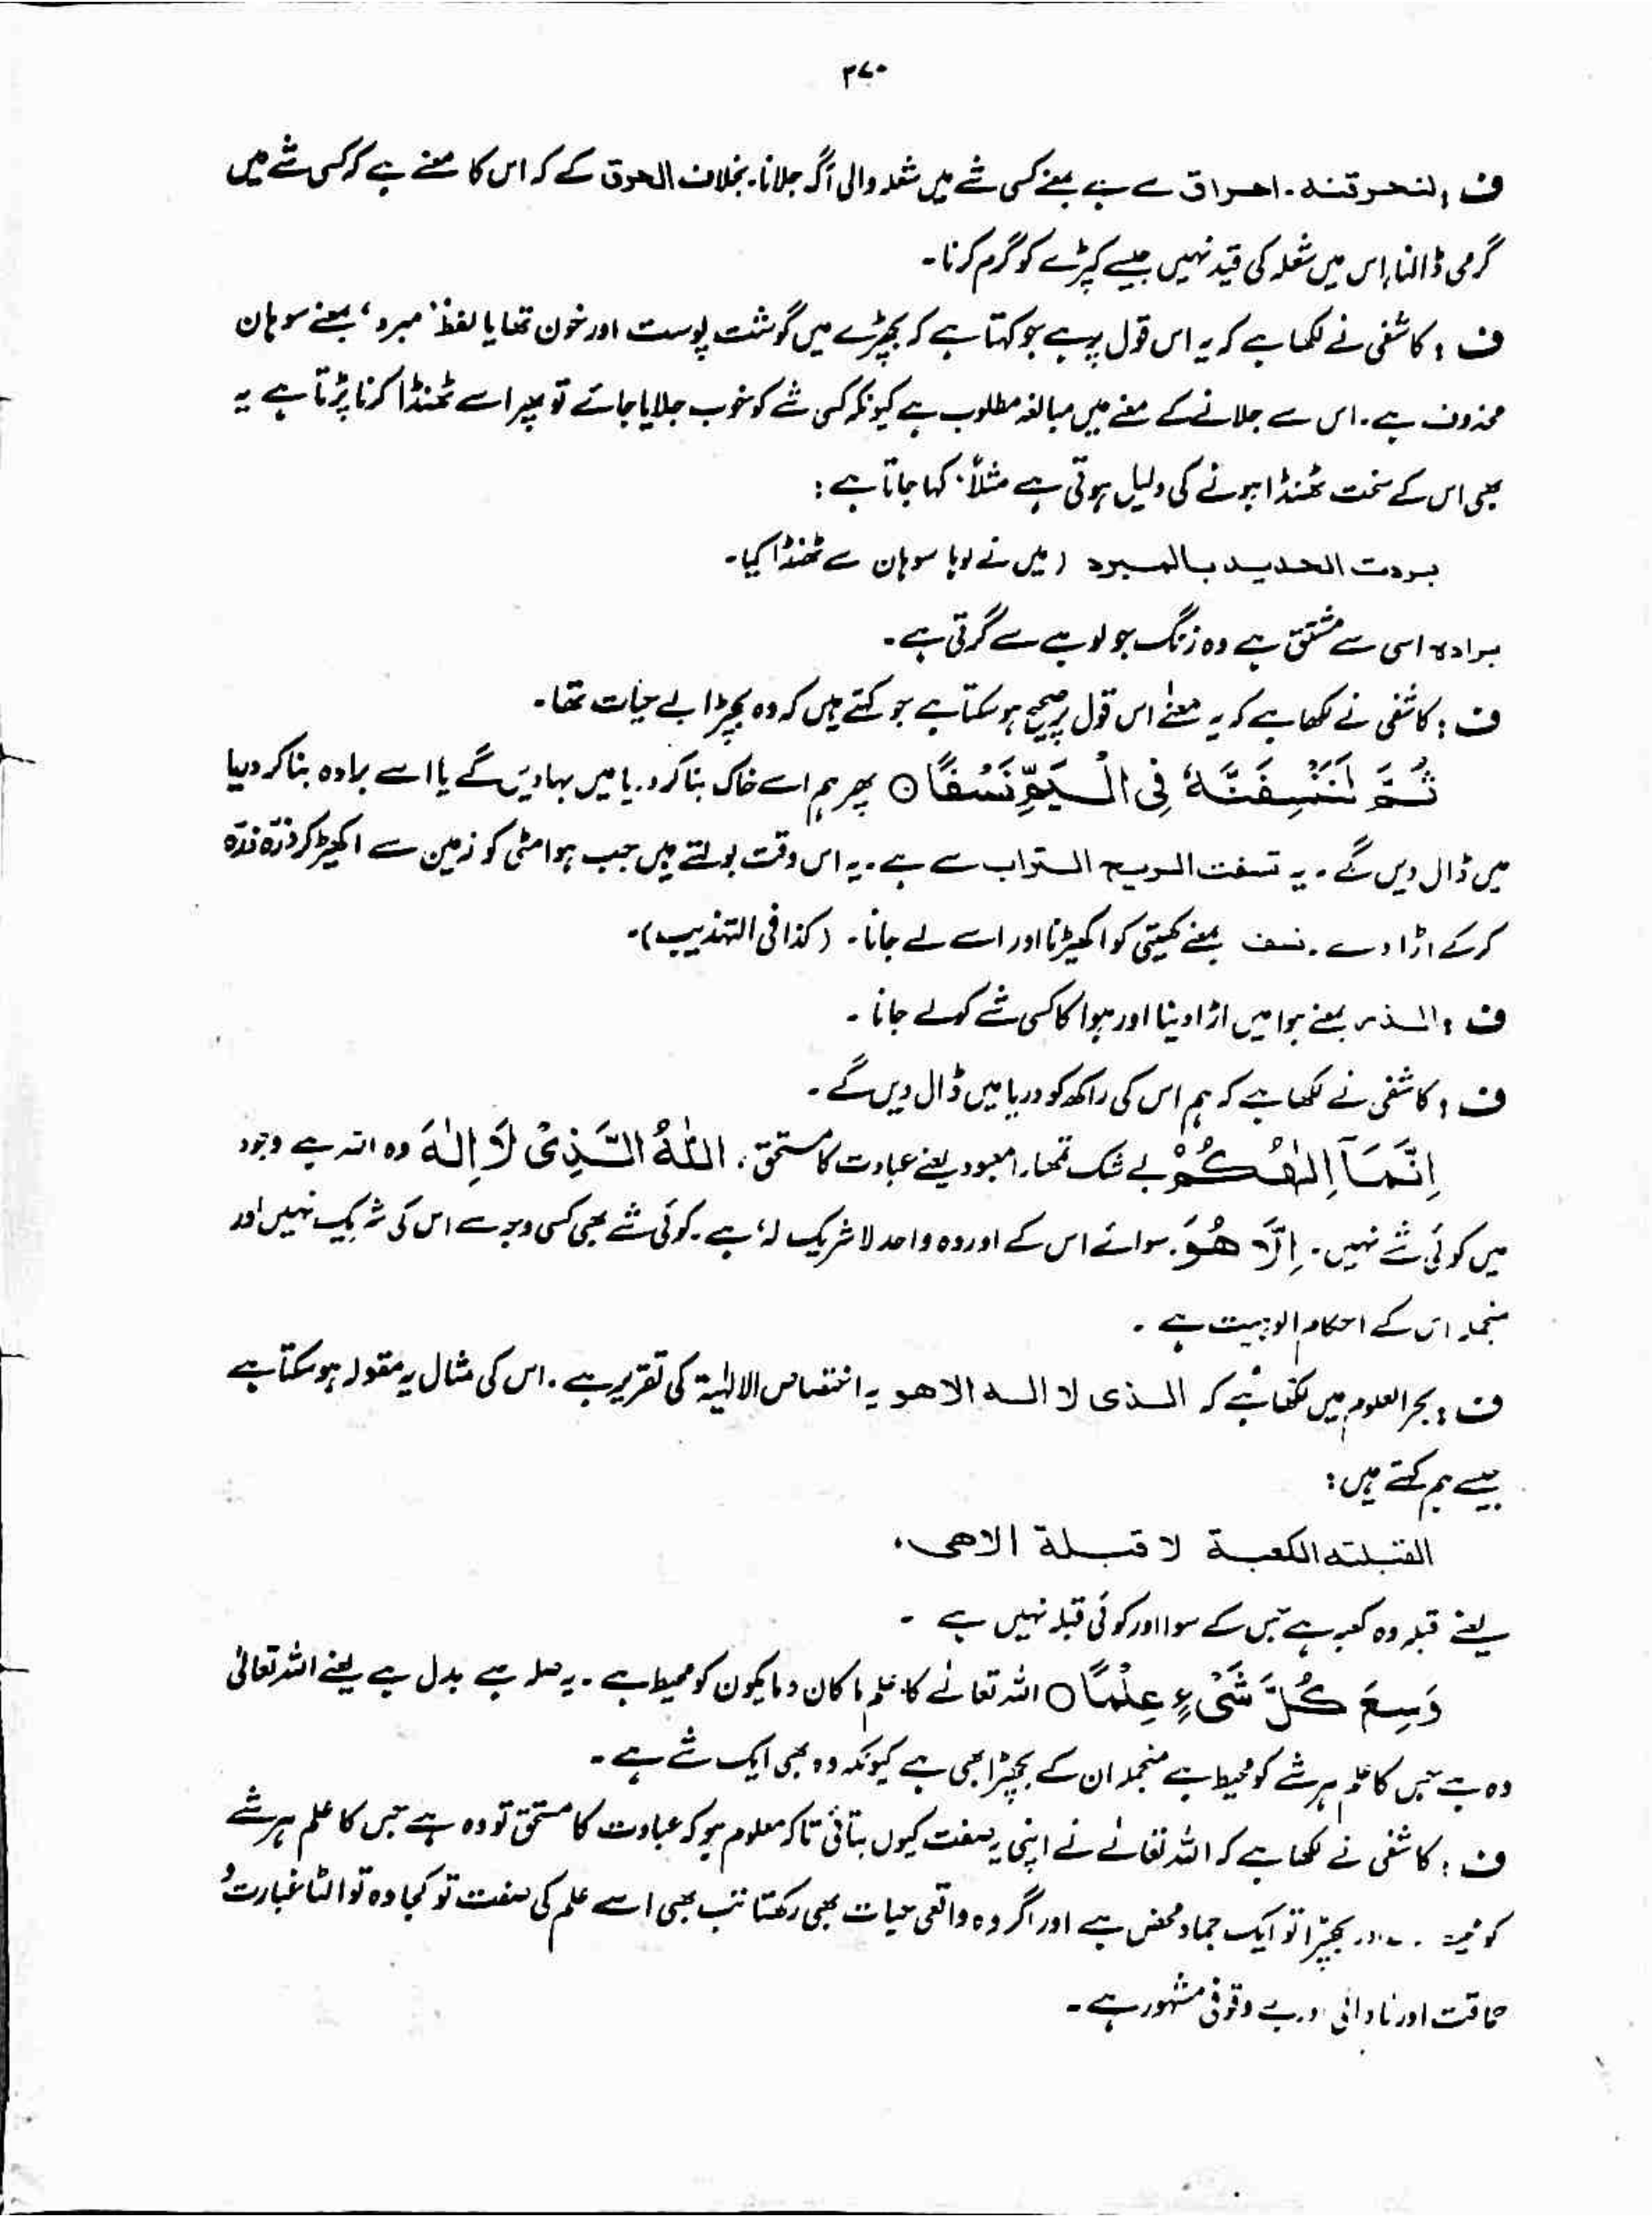 ۳۷۰
ف : لنحرقنہ ۔ احراق سے ہے بمعنے کسی شے میں شعلہ والی آگ جلانا۔ بخلاف الحرق کے کہ اس کا معنے ہے کہ کسی شے میں
گرمی ڈالنا اس میں شعلہ کی قید نہیں جیسے کپڑے کو گرم کرنا۔
ف : کاشفی نے لکھا ہے کہ یہ اس قول پر ہے جو کہتا ہے کہ بچھڑے میں گوشت پوست اور خون تھا یا لفظ 'مبرد' بمعنے سوہان
محذوف ہے۔ اس سے جلانے کے معنے میں مبالغہ مطلوب ہے کیونکہ کسی شے کو خوب جلایا جائے تو پھر اسے ٹھنڈا کرنا پڑتا ہے یہ
بھی اس کے سخت ٹھنڈا ہونے کی دلیل ہوتی ہے مثلاً کہا جاتا ہے :
بردت الحدید بالمبرد ( میں نے لوہا سوہان سے ٹھنڈا کیا۔
برادہ اسی سے مشتق ہے وہ زنگ جو لوہے سے گرتی ہے۔
ف : کاشفی نے لکھا ہے کہ یہ معنےٰ اس قول پر صحیح ہو سکتا ہے جو کہتے ہیں کہ وہ بچھڑا بے حیات تھا۔
ثُمَّ لَنَنْسِفَنَّهٗ فِی الْیَمِّ نَسْفًا ○ پھر ہم اسے خاک بنا کر دریا میں بہا دیں گے یا اسے برادہ بنا کر دریا
میں ڈال دیں گے۔ یہ نسفت الریح التراب سے ہے۔ یہ اس وقت بولتے ہیں جب ہوا مٹی کو زمین سے اکھیڑ کر ذرّہ ذرّہ
کر کے اڑا دے۔ نسف بمعنے کھیتی کو اکھیڑنا اور اسے لے جانا۔ (کذا فی التہذیب)۔
ف : الذر بمعنے ہوا میں اڑا دینا اور ہوا کا کسی شے کو لے جانا ۔
ف : کاشفی نے لکھا ہے کہ ہم اس کی راکھ کو دریا میں ڈال دیں گے ۔
اِنَّمَآ اِلٰهُكُمْ بے شک تمہارا معبود یعنے عبادت کا مستحق ، اللّٰهُ الَّذِیْ لَآ اِلٰهَ وہ اللہ ہے وجود
میں کوئی شے نہیں۔ اِلَّا هُوَ۔ سوائے اس کے اور وہ واحد لا شریک لہٗ ہے۔ کوئی شے بھی کسی وجہ سے اس کی شریک نہیں اور
منجملہ اس کے احکام الوہیت ہے ۔
ف : بحر العلوم میں لکھا ہے کہ الذی لا الہ الا ھو یہ اختصاص الالٰہیۃ کی تقریر ہے۔ اس کی مثال یہ مقولہ ہو سکتا ہے
جیسے ہم کہتے ہیں :
القبلتہ الکعبۃ لا قبلۃ الا ھی۔
یعنے قبلہ وہ کعبہ ہے جس کے سوا اور کوئی قبلہ نہیں ہے ۔
وَسِعَ كُلَّ شَیْءٍ عِلْمًا ○ اللہ تعالےٰ کا علم ما کان و ما یکون کو محیط ہے۔ یہ صلہ ہے بدل ہے یعنے اللہ تعالیٰ
وہ ہے جس کا علم ہر شے کو محیط ہے منجملہ ان کے بچھڑا بھی ہے کیونکہ وہ بھی ایک شے ہے۔
ف : کاشفی نے لکھا ہے کہ اللہ تعالےٰ نے اپنی یہ صفت کیوں بتائی تاکہ معلوم ہو کہ عبادت کا مستحق تو وہ ہے جس کا علم ہر شے
کو بچھڑا تو ایک جماد محض ہے اور اگر وہ واقعی حیات بھی رکھتا تب بھی اسے علم کی صفت تو کجا وہ تو الٹا غباوت و
حماقت اور نادانی و بے وقوفی مشہور ہے۔